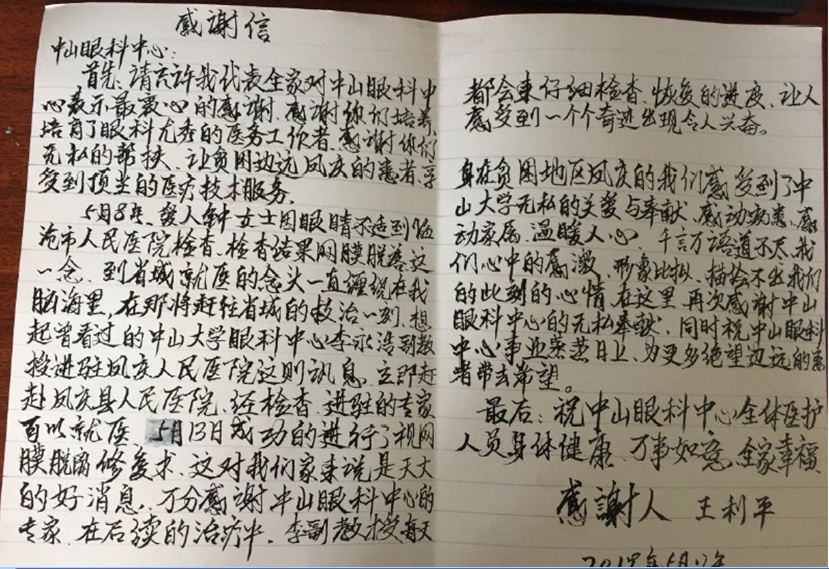 感謝信
中山眼科中心:
首先,请允许我代表全家对中山眼科中
心表示最衷心的感谢,感谢你们培养
培育了眼科尤秀的医务工作者,感谢你们
无私的帮扶、让贫困边远凤庆的患者享
受到顶尖的医疗技术服务。
5月8号、爱人钟女士因眼睛不适到临
沧市人民医院检查、检查结果网膜脱落这
一念、到省城就医的念头一直缠绕在我
脑海里,在那将赶往省城的救治一刻、想
起曾看过的中山大学眼科中心李永浩副教
授进驻凤庆人民医院这则讯息、立即赶
赴凤庆县人民医院、经检查、进驻的专家
可以就医、5月13日成功的进行了视网
膜脱离修复术、这对我们家来说是天大
的好消息、万分感谢中山眼科中心的
专家、在后续的治疗中、李副教授每天
都会来仔细检查、恢复的进度、让人
感受到一个个奇迹出现令人兴奋。
身在贫困地区凤庆的我们感受到了中
山大学无私的关爱与奉献、感动病患、感
动家属、温暖人心、千言万语道不尽、我
们心中的感激、形象比拟、描绘不出我们
的此刻的心情、在这里、再次感谢中山
眼科中心的无私奉献、同时祝中山眼科
中心事业蒸蒸日上、为更多绝望边远的患
者带去希望。
最后:祝中山眼科中心全体医护
人员身体健康、万事如意、全家幸福
感謝人 王利平